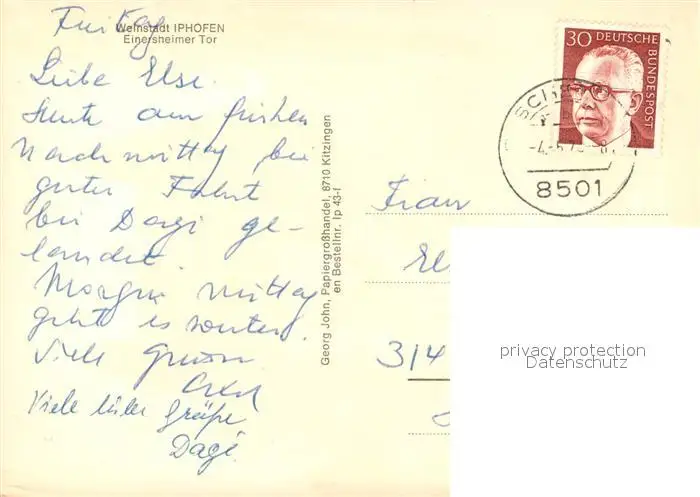 Freitag
Weinstadt IPHOFEN
Einersheimer Tor
Liebe Else.
Heute am frühen
Nachmittag bei
guter Fahrt
bei Dagi ge-
landet.
Morgen mittag
geht es weiter.
Viele Grüsse
Viele liebe Grüße
Dagi.
Georg John, Papiergroßhandel, 8710 Kitzingen
en Bestellnr. Ip 43-f
30 DEUTSCHE BUNDESPOST
8501
Frau
314
privacy protection
Datenschutz